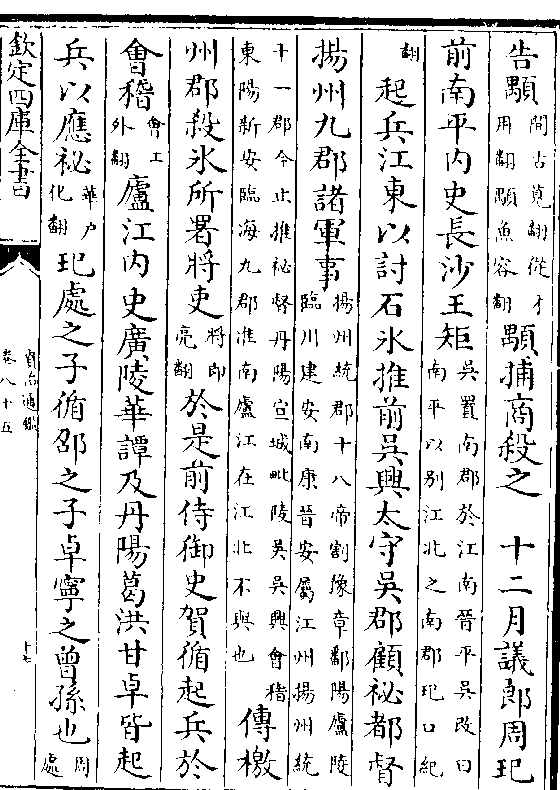 告顒間古莧翻從才用翻顒魚容翻顒捕商殺之　十二月議郎周玘
前南平内史長沙王矩吳置南郡於江南晉平吳改曰南平以別江北之南郡玘口紀
翻起兵江東以討石氷推前吳興太守吳郡顧祕都督
揚州九郡諸軍事揚州統郡十八帝割豫章鄱陽廬陵臨川建安南康晉安屬江州揚州統
十一郡今止推祕督丹陽宣城毗陵吳吳興會稽東陽新安臨海九郡淮南廬江在江北不與也傳檄
州郡殺氷所署將吏將即亮翻於是前侍御史賀循起兵於
會稽會工外翻廬江内史廣陵華譚及丹陽葛洪甘卓皆起
兵以應祕華户化翻玘處之子循邵之子卓寧之曾孫也周處
欽定四庫全書
資治通鑑
卷八十五
十七